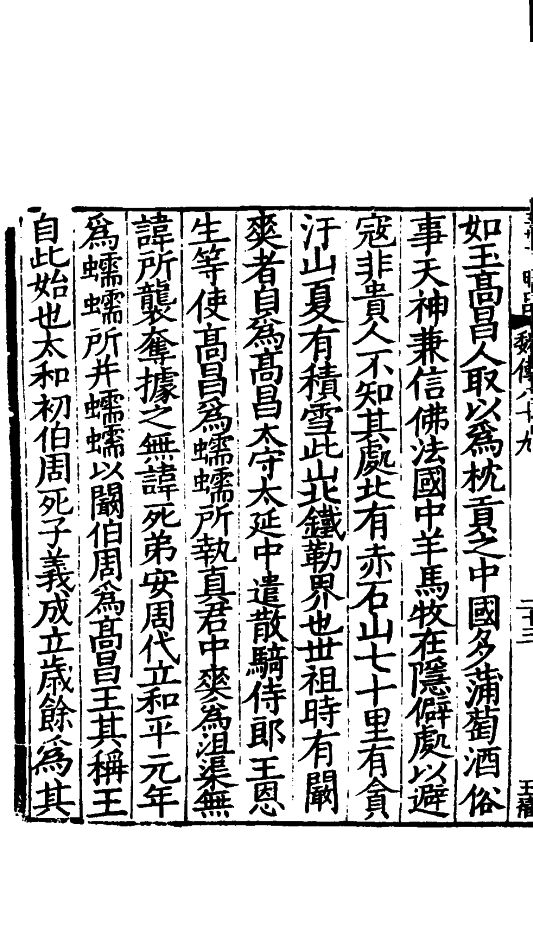 如玉髙昌人取以爲枕貢之中國多蒲萄酒俗
事天神兼信佛法國中羊馬牧在隱僻處以避
寇非貴人不知其處北有赤石山七十里有貪
汗山夏有積雪此山北鐵勒界也世祖時有闞
爽者自爲髙昌太守太延中遣散騎侍郎王恩
生等使髙昌爲蠕蠕所執真君中爽爲沮渠無
諱所襲奪據之無諱死弟安周代立和平元年
爲蠕蠕所并蠕蠕以闞伯周爲髙昌王其稱王
自此始也太和初伯周死子義成立歳餘爲其